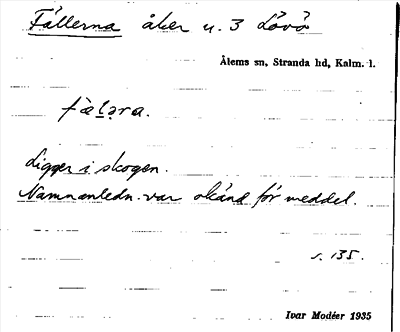 Fällerna åker u. 3 Lövö
Ålems sn, Stranda hd, Kalm. l.
fàḷəra.
Ligger i skogen.
Namnanledn. var okänd för meddel.
s. 135.
Ivar Modéer 1935